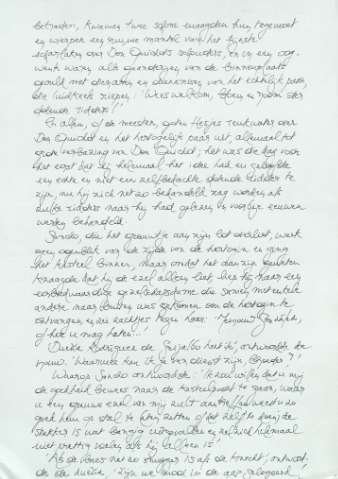 betraden, kwamen twee schone maagden hun tegemoet
en wierpen een ruime mantel van het fijnste
scharlaken om Don Quichots schouders, en in een oog-
wenk waren alle galerijen van de binnenplaats
gevuld met dienaren en dienaressen van het echtelijk paar
die luidkeels riepen: 'Wees welkom, bloem en room der
dolende ridders!'
En allen, of de meesten, goten flesjes reukwater over
Don Quichot en het hertogelijk paar uit, allemaal tot
grote verbazing van Don Quichot; het was die dag voor
het eerst dat hij helemaal het idee had en geloofde
een echte en niet een zelfbedachte dolende ridder te
zijn, nu hij zich net zo behandeld zag worden als
zulke ridders naar hij had gelezen in vroeger eeuwen
werden behandeld.
Sancho, die het grauwtje aan zijn lot overliet, week
geen ogenblik van de zijde van de hertogin en ging
het kasteel binnen, maar omdat het aan zijn geweten
knaagde dat hij de ezel alleen liet liep hij naar een
eerbiedwaardige gezelschapsdame die samen met enkele
andere naar buiten was gekomen om de hertogin te
ontvangen en zei zachtjes tegen haar:
of hoe u mag heten...'
'Doña Rodríguez de Grijalba heet ik,' antwoordde de
'Waarmee kan ik je van dienst zijn,
Waarop Sancho antwoordde: 'Ik zou willen dat u mij
de goedheid bewees naar de kasteelpoort te gaan, waar
u een grauwe ezel van mij zult aantreffen; weest u zo
goed hem op stal te zetten of dat te doen, de
stakker is wat bangig uitgevallen en zal zich helemaal
niet prettig voelen als hij alleen is.'
'Als de baas net zo snugger is als de knecht,' antwoord-
de de dueña, 'zijn we mooi in de aap gelogeerd!